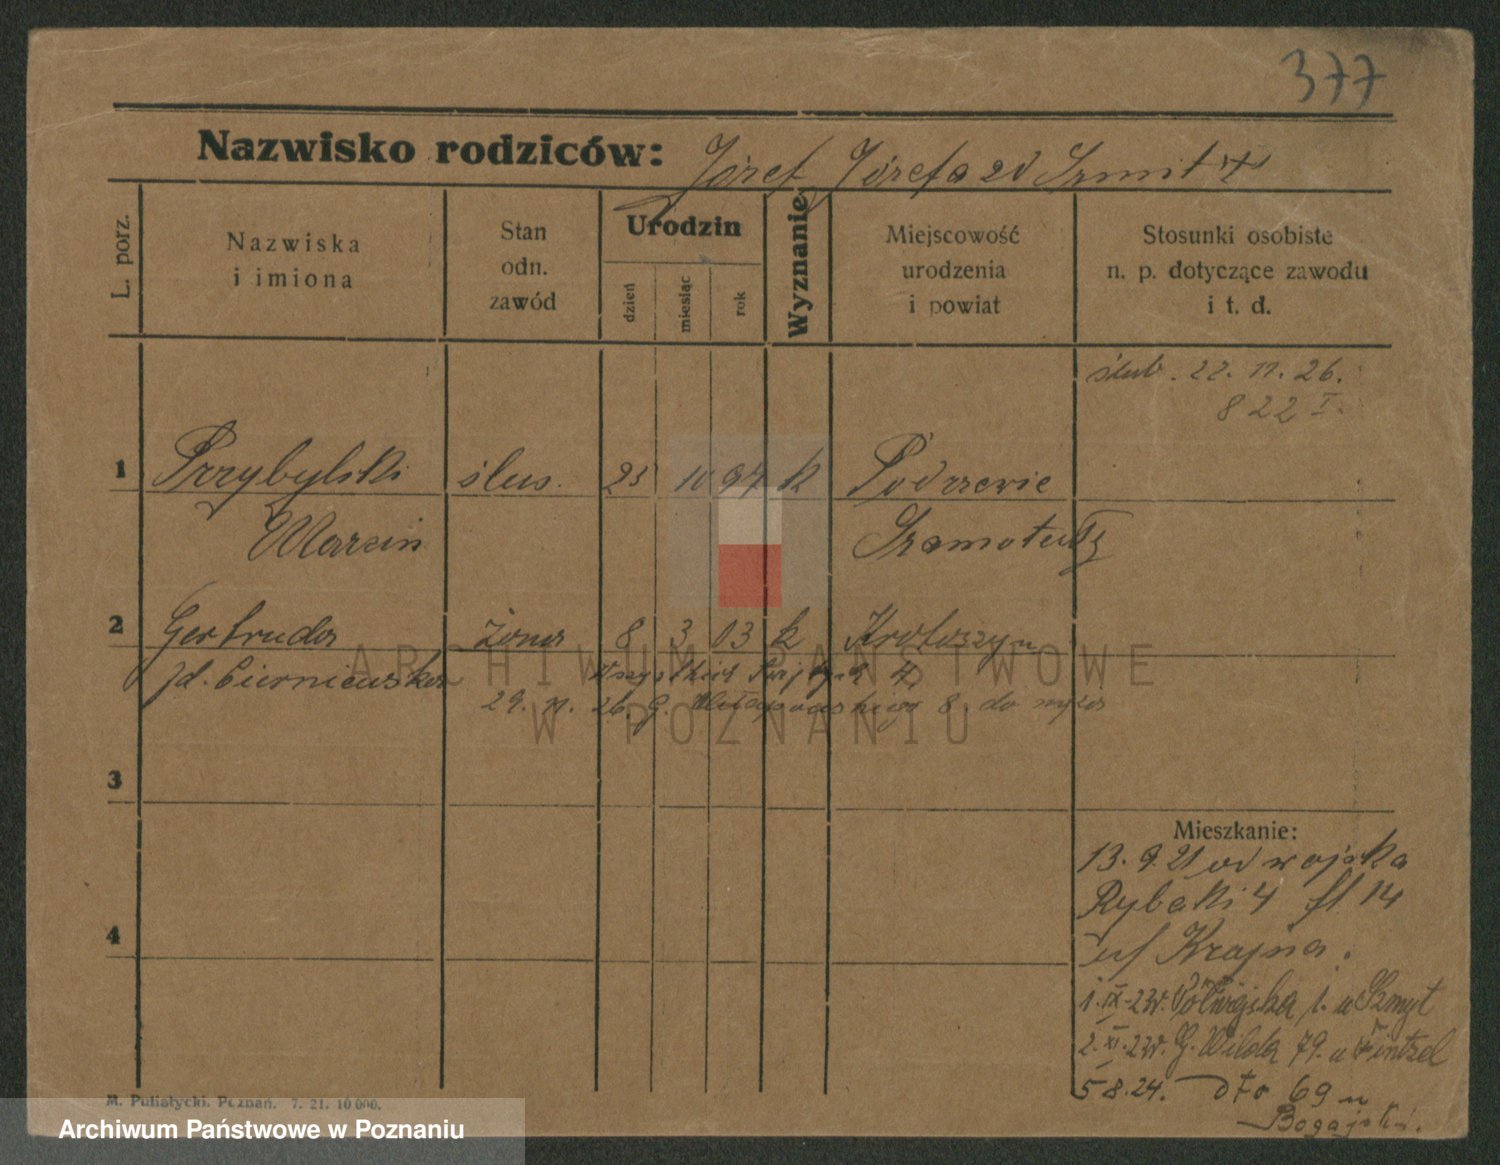 377
Nazwisko rodziców: Józef Józefa zd Szmit
L. porz.
Nazwiska
i imiona
Stan
odn.
zawód
Urodzin
dzień
miesiąc
rok
Wyznanie
Miejscowość
urodzenia
i powiat
Stosunki osobiste
n. p. dotyczące zawodu
i t. d.
ślub. 22. 11. 26.
822 I.
1 Przybylski ślus. 25 10 97 k Podrzewie
Marcin Szamotuły
2 Gertruda żona 8 3 03 k Krotoszyn
zd. Cierniewska
29. 11. 26. G. 8. do męża
3
4
Mieszkanie:
13. 9. 21 od wojska
Rybaki 4 fl 14
uf Krajna.
1. IX. 23r. Półwiejska 1. u Szmyt
2. XI. 23r. G. Wilda 79. u Fintzel
5 8. 24. dto 69 u
Bogajski.
M. Putiatycki, Poznań. 7. 21. 10000.
ARCHIWUM PAŃSTWOWE
W POZNANIU
Archiwum Państwowe w Poznaniu